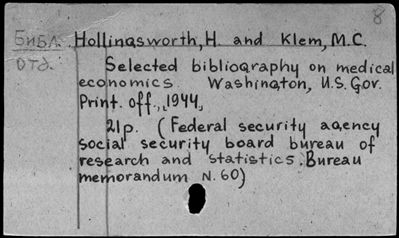 8
Библ. Hollingsworth, H. and Klem, M.C.
отд. Selected bibliography on medical
economics. Washington, U.S. Gov.
Print. off., 1944,
21p. (Federal security agency
social security board bureau of
research and statistics. Bureau
memorandum N. 60)